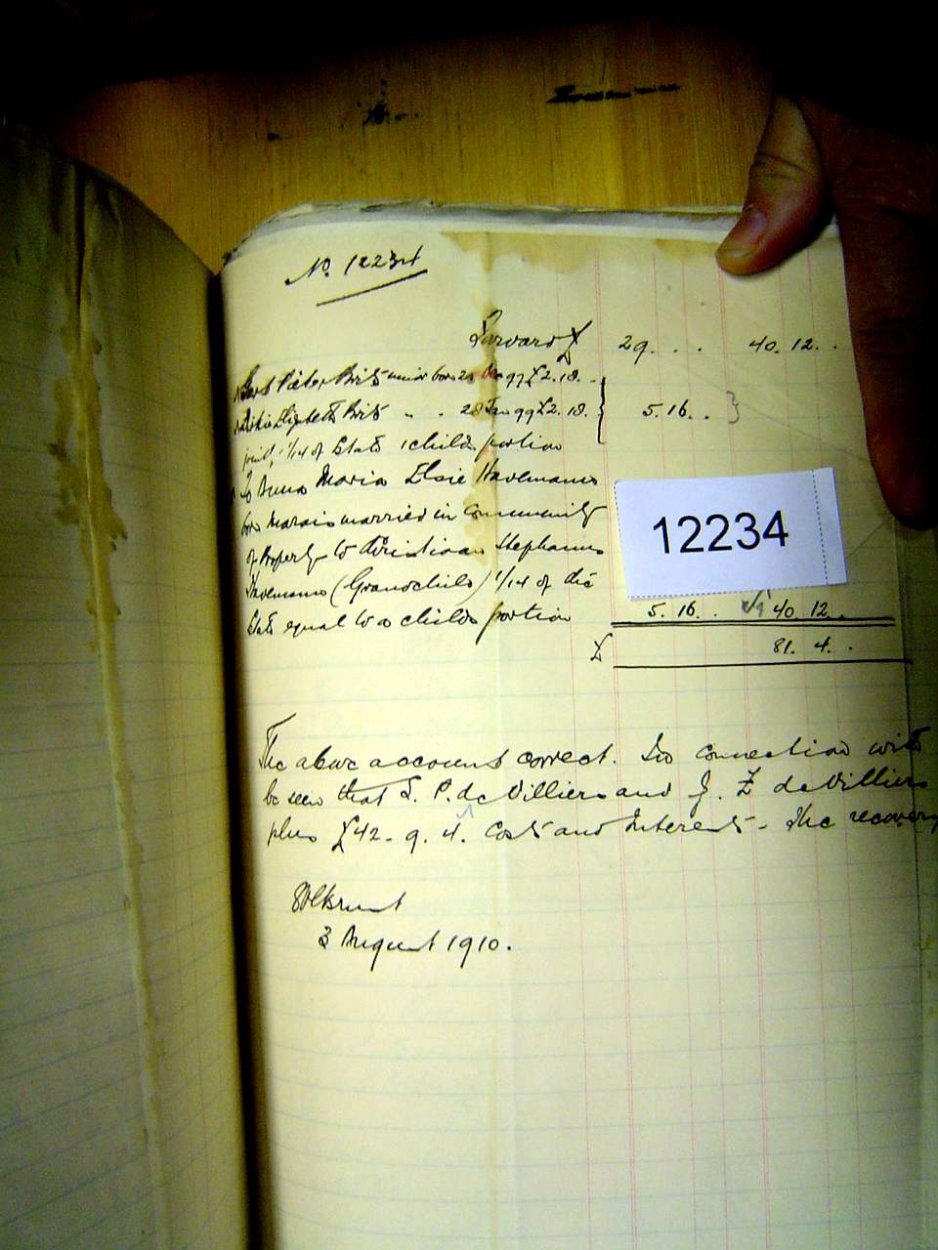 No. 12234
Forward £ 29. . . 40. 12. .
Pieter Brits minor born 20 Dec 97 £2. 18. .
Elizabeth Brits " . . 28 Jan 99 £2. 18. 5. 16. .
1/14 of Estate 1 childs portion
To Anna Maria Elsie Havemann
born Marais married in Community
of Property to Christiaan Stephanus
Havemann (Grandchild) 1/14 of the
Estate equal to a childs portion 5. 16. . 40. 12. .
£ 81. 4. .
12234
The above account correct. In connection with
be seen that S. P. de Villiers and J. Z. de Villiers
plus £42. 9. 4. Costs and Interest - The recovery
Volksrust
3 August 1910.